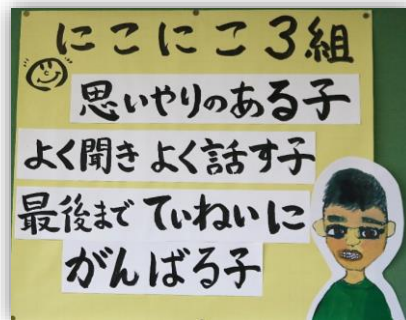 にこにこ3組
思いやりのある子
よく聞き よく話す子
最後まで ていねいに
がんばる子